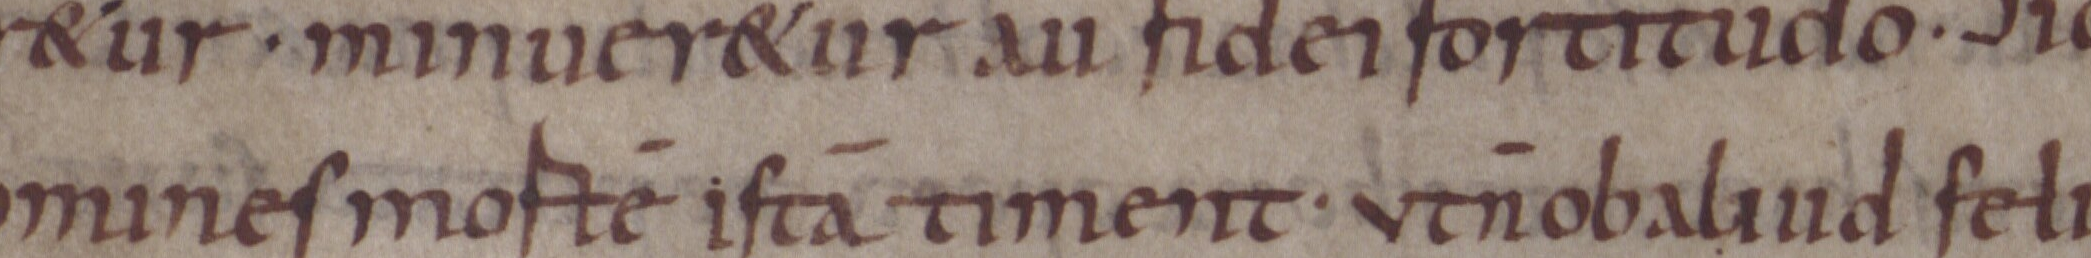 &ur · minuer&ur au fidei fortitudo ·
mines mortē istā timent · vt n̄ ob aliud feli